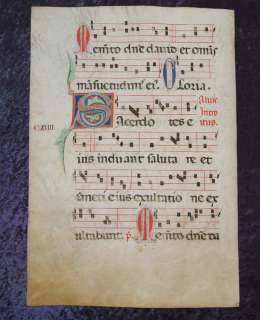 Memento dne david et omis
mansuetudinis ei. Gloria.
Sacerdo tes e
ius induant saluta re et
sancti eius exultatio ne ex
ultabunt. p. Memento dne da